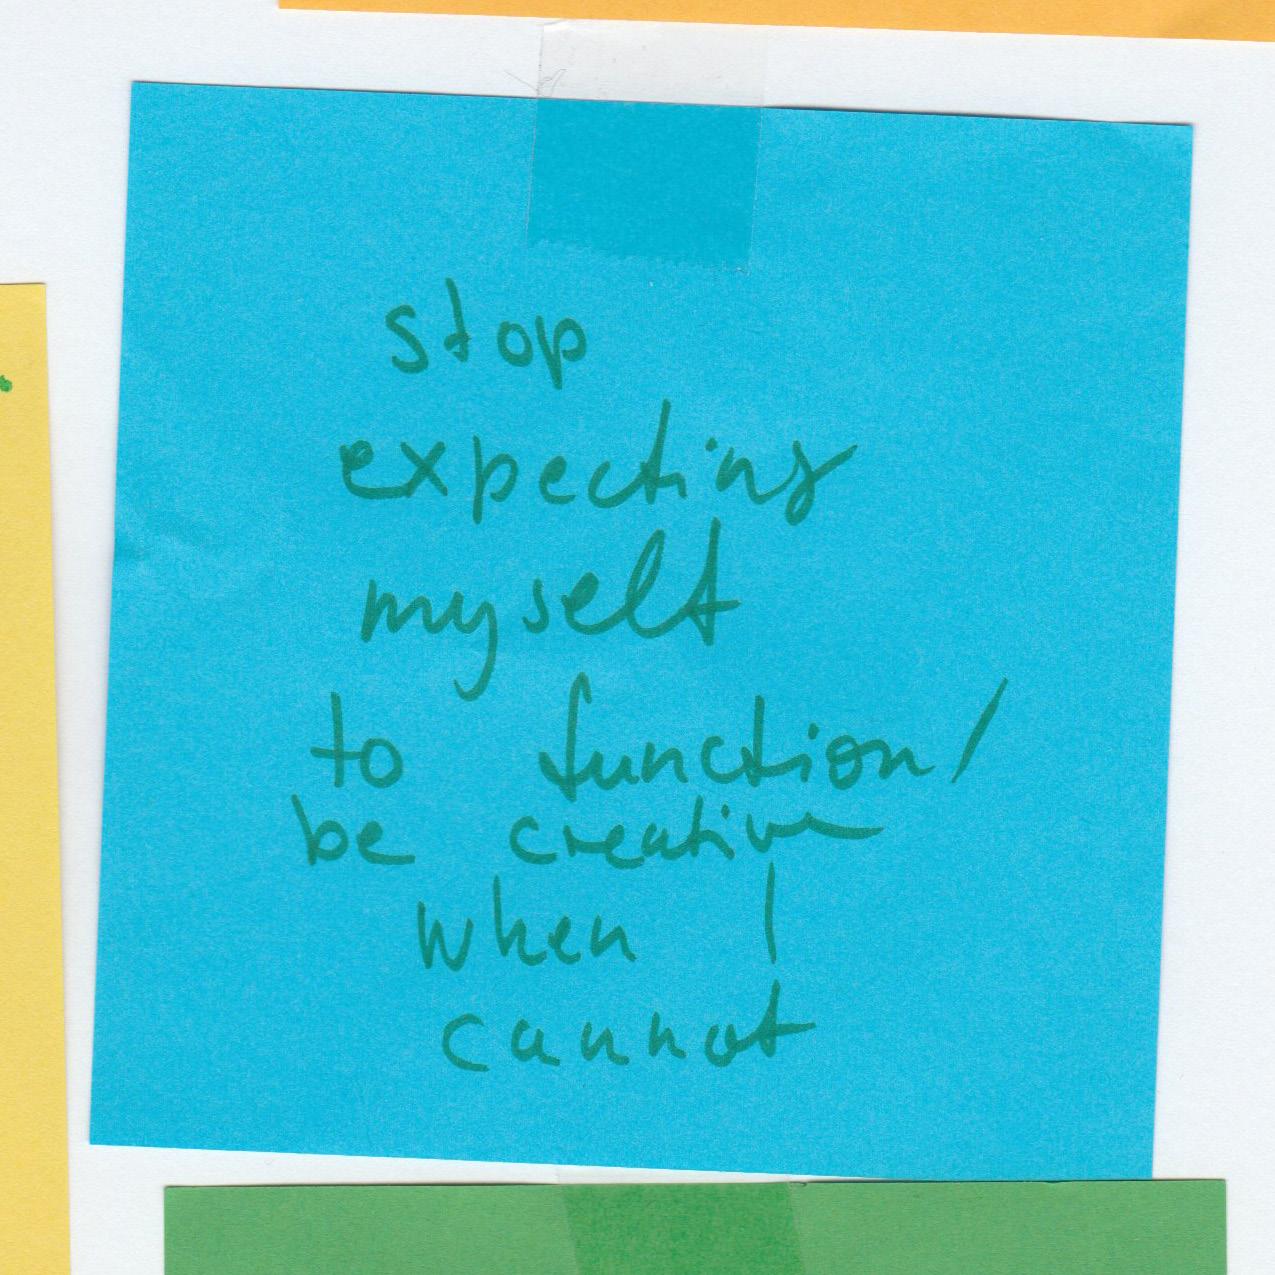 stop
expecting
myself
to function/
be creative
when I
cannot